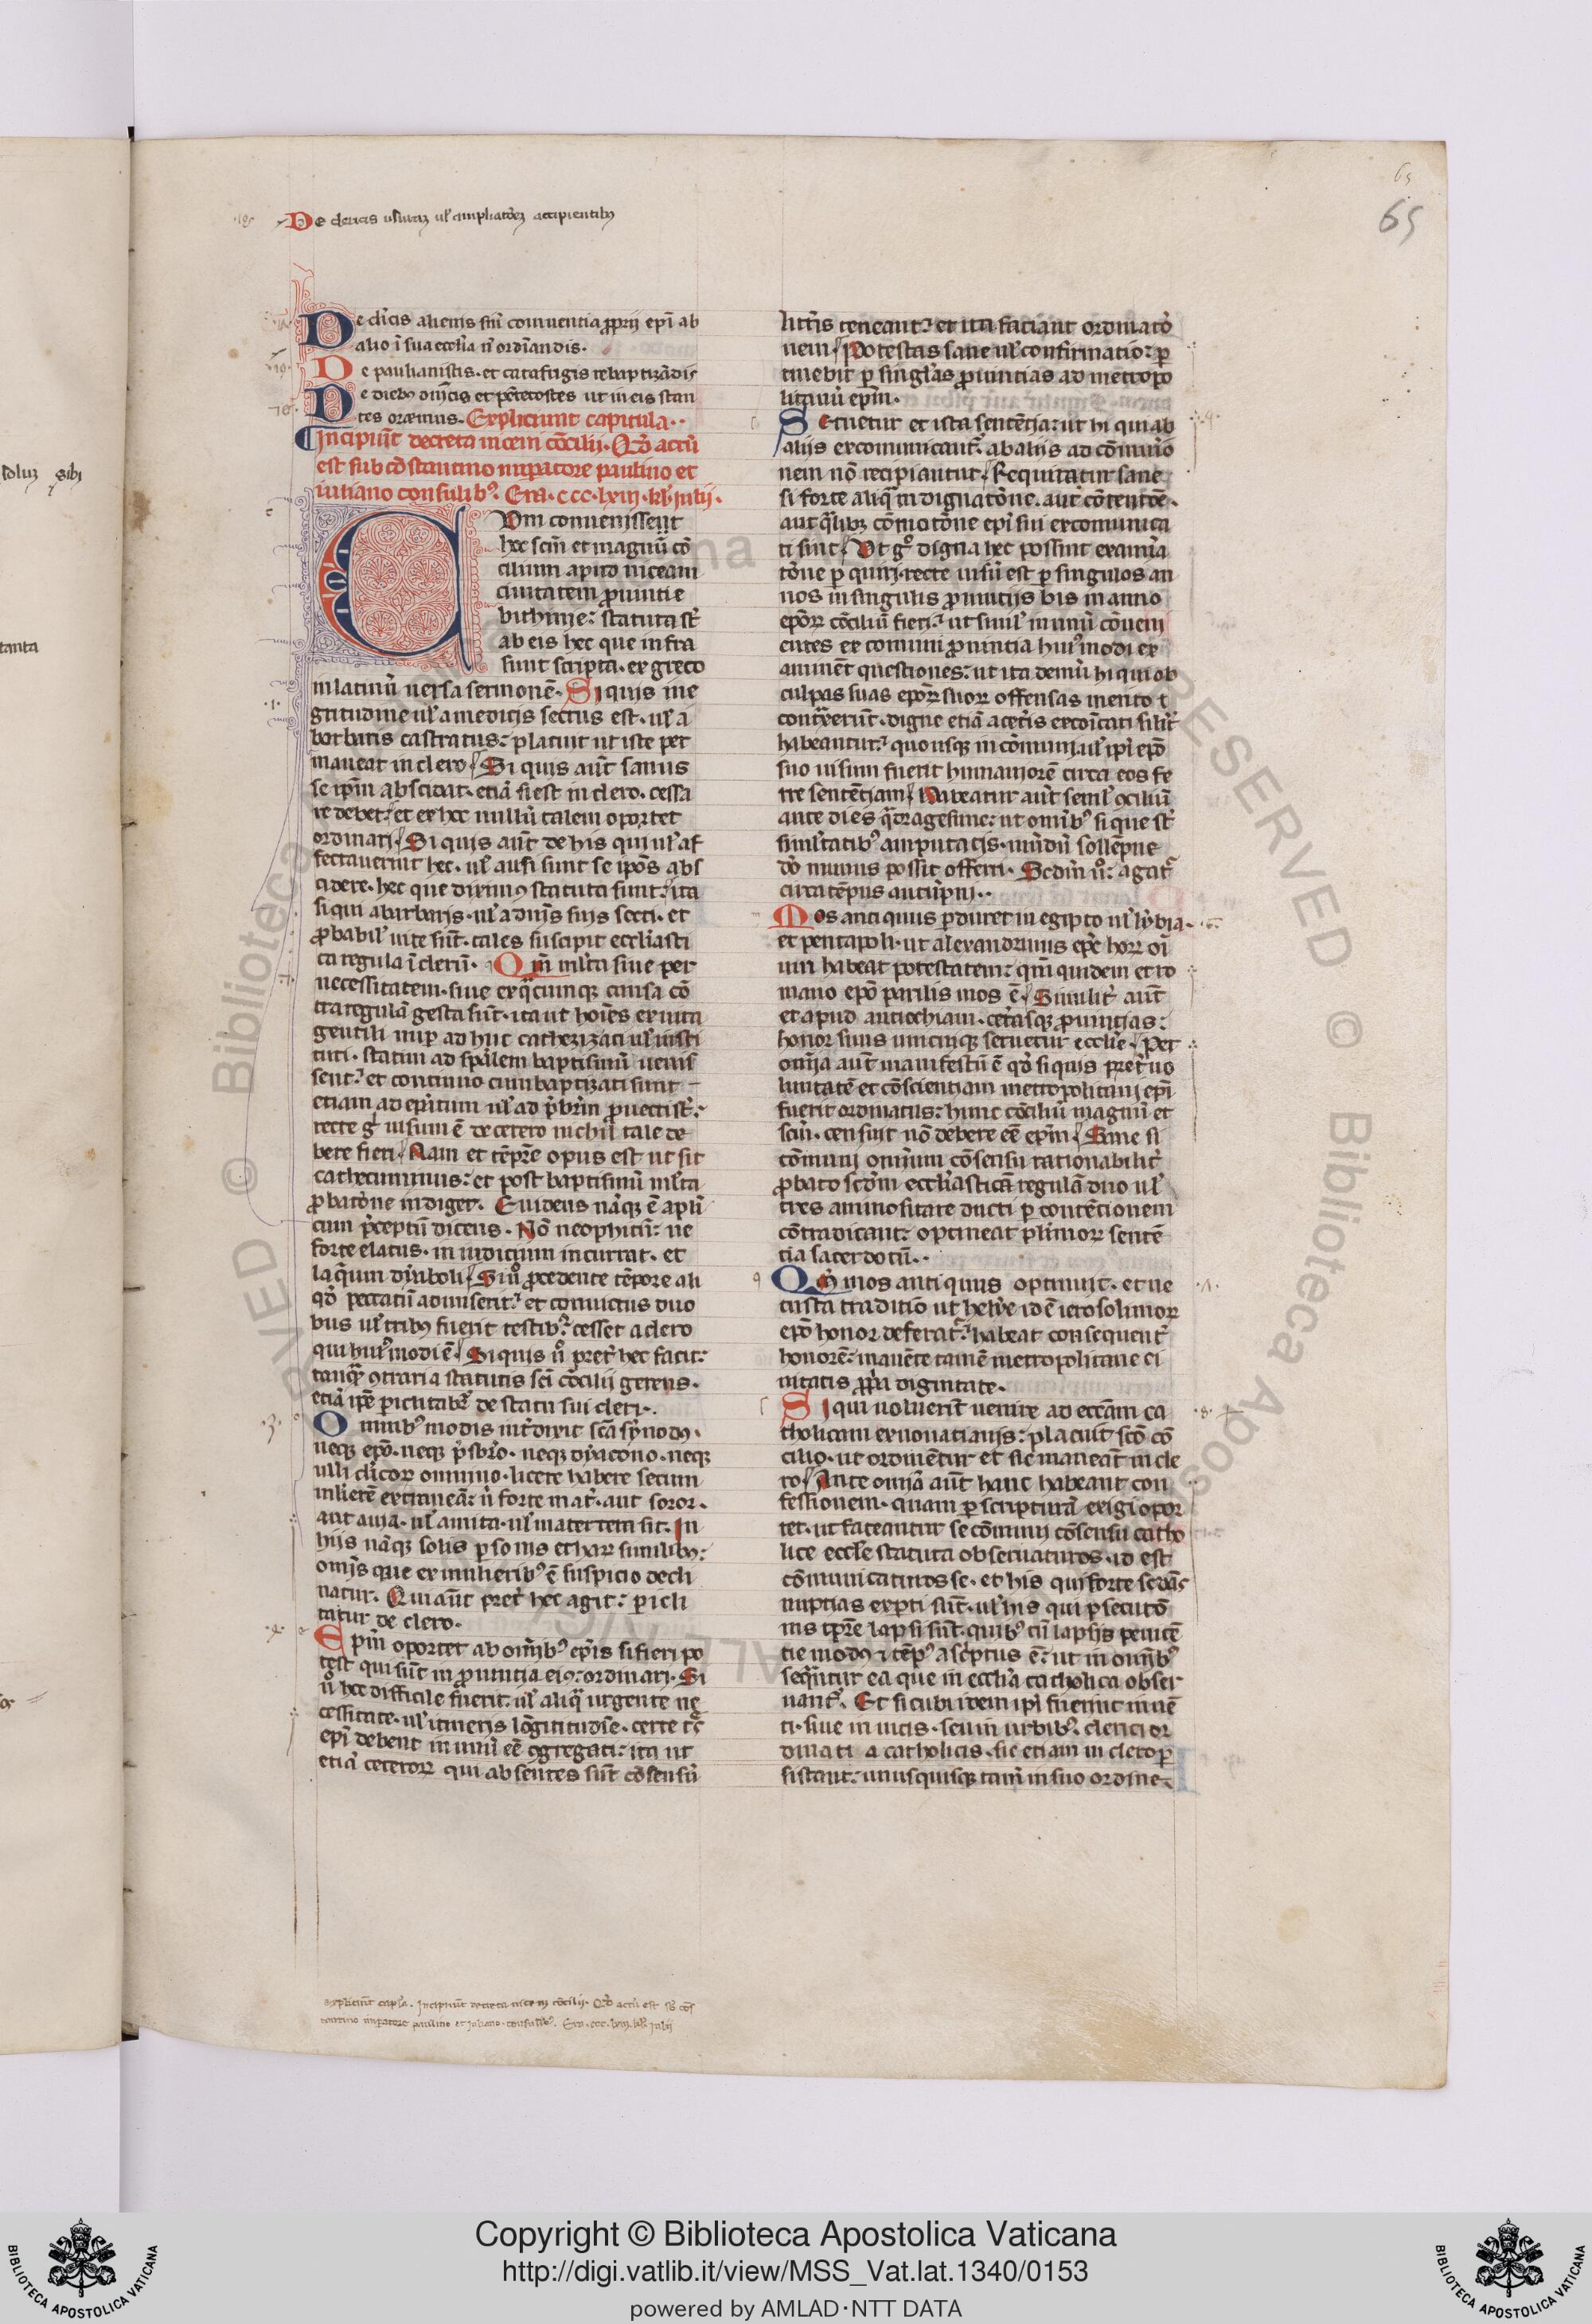 65
65
De clericis usuraʒ ul' ampliatōeʒ accipientibꝰ
De cl'icis alienis sin̄ conniuentia ꝓprij ep̄i ab
alio ī sua eccl'ia n̄ ordinandis.
De paulianistis. et catafrigis rebaptizādis
De diebꝰ dn̄icis et pētecostes ut in eis stan
tes oremus. Expliciunt capitula..
Incipiūt decreta niceni cōcilij. Qd̄ actū
est sub cōstantino inꝑatore paulino et
iuliano consulibꝰ. Era. ccc. lxiij. kl' iulij.
Cvm conuenissent
hec scm̄ et magnū cō
cilium apud niceam
ciuitatem ꝓuintie
bithinie: statuta st̄
ab eis hec que infra
sunt scripta. ex greco
in latinū uersa sermonē. Si quis in e
gritudine ul' a medicis sectus est. ul' a
barbaris castratus: placuit ut iste per
maneat in clero. Si quis aūt sanus
se ip̄m abscidit. etiā si est in clero. cessa
re debet: et ex hec nullū talem oportet
ordinari. Si quis aūt de his qui ul' af
fectauerunt hec. ul' ausi sunt se ip̄os abs
cidere. hec que diximꝰ statuta sunt: ita
si qui a barbaris. ul' a dn̄is suis secti. et
ꝓbabil' uite sūt. tales suscipit eccl'iasti
ca regula ī clerū. Qm̄ ml'ta siue per
necessitatem. siue ex q̄cunqꝫ causa cō
tra regulā gesta sūt. ita ut hoīes ex uita
gentili nuꝑ ad huc cathezizati ul' insti
tuti. statim ad sp̄alem baptismū uenis
sent: et continuo cum baptizati sunt
etiam ad ep̄itum ul' ad p̄b'rm ꝓuecti st̄:
recte gͦ uisum ē de cetero nichil tale de
bere fieri. Nam et tēpꝛe opus est ut sit
cathecuminus: et post baptismū ml'ta
ꝓbatōne indiget. Euidens nāqꝫ ē apl'i
cum p̄ceptū dicens. Nō neophitū: ne
forte elatus. in iudicium incurrat. et
laq̄um dyaboli. Si uͦ ꝓcedente tēpore ali
qd̄ peccatū admiserit: et conuictus duo
bus ul' tribꝰ fuerit testibꝰ: cesset a clero
qui huiꝰmodi ē. Si quis uͦ pret' hec facit:
tanq̄ 9traria statutis sc̄i cōcilij gerens.
etiā ip̄e ꝑiclitabit' de statu sui cleri.
Omnibꝰ modis int'dixit sc̄a synodꝰ.
neqꝫ ep̄o. neqꝫ p̄sbr̄o. neqꝫ dyacono. neqꝫ
ulli cl'icoꝝ omnino. licere habere secum
mlierē extraneā: n̄ forte mat'. aut soror.
aut auia. ul' amita. ul' matertera sit. In
hiis nāqꝫ solis ꝑsonis et haꝝ similibꝰ:
omīs que ex mulieribꝰ ē suspicio decli
natur. Qui aūt pret' hec agit: ꝑicli
tatur de clero.
Ep̄m oportet ab omībꝰ ep̄is si fieri po
test qui sūt in ꝓuintia eiꝰ: ordinari. Si
uͦ hec difficile fuerit. ul' aliq̄ urgente ne
cessitate. ul' itineris lōgitudīe. certe tres
ep̄i debent in unū eē 9gregati: ita ut
etiā ceteroꝝ qui absentes sūt cōsensū
litt'is teneant': et ita faciant ordinatō
nem. Potestas sane ul' confirmatio: ꝑ
tinebit ꝑ singl'as ꝓuintias ad metropo
litanū ep̄m.
Seruetur et ista sentētia: ut hi qui ab
aliis excomunicant': ab aliis ad cōmuni̇o
nem nō recipiantur. Requiratur sane
si forte aliq̄ indignatōne. aut cōtentōe.
aut q̄libꝫ cōmotōne ep̄i sui excomunica
ti sint. Ut gͦ digna hec possint examina
tōne ꝑ quiri. recte uisū est ꝑ singulos an
nos in singulis ꝓuintijs bis in anno
ep̄oꝝ cōciliū fieri: ut simul' in unū cōueni
entes ex comuni ꝓuintia huiꝰmodi ex
aminēt questiones: ut ita demū hi qui ob
culpas suas ep̄oꝝ suoꝝ offensas merito
contraxerūt. digne etiā a cet'is excōicati sil'it'
habeantur: quousqꝫ in cōmuni ul' ip̄i ep̄o
suo uisum fuerit humaniorē circa eos fe
rre sentētiam. Habeatur aūt semel' 9ciliū
ante dies q̄dragesime: ut omībꝰ si que st̄
simltatibꝰ amputatis. mūdū sollēpne
dō munus possit offerri. Scd̄m uͦ: agat'
circa tēpus autūpni..
Mos antiquus ꝑduret in egipto ul' lybia.
et pentapoli. ut alexandrinus ep̄c hoꝝ oī
um habeat potestatem: qm̄ quidem et ro
mano ep̄o parilis mos ē. Similit' aūt
et apud antiochiam. cet'asqꝫ ꝓuintias:
honor suus unicuiqꝫ seruetur eccl'ie. Per
omīa aūt manifestū ē qd̄ si quis pret' uo
luntatē et cōscientiam metropolitani ep̄i
fuerit ordinatus: hunc cōciliū magnū et
scm̄. censuit nō debere eē ep̄m. Sane si
cōmuni omnium cōsensu rationabilit'
ꝓbato scd̄m eccl'iasticā regulā duo ul'
tres animositate ducti ꝑ contētionem
cōtradicant: optineat pl'imoꝝ sentē
tia sacerdotū..
Qm̄ mos antiquus optinuit. et ue
tusta traditio ut helye id ē ierosolimoꝝ
ep̄o honor deferat': habeat consequent'
honorē: manēte tamē metropolitane ci
uitatis ꝓpīa dignitate.
Si qui uoluerīt uenire ad eccl'am ca
tholicam ex nouatianis: placuit sc̄o cō
cilio. ut ordinētur et sic maneāt in cle
ro. Ante omīa aūt hanc habeant con
fessionem. quam ꝑ scripturā exigi opor
tet. ut fateantur se cōmuni cōsensu catho
lice eccl'e statuta obseruaturos. id est
cōmunicaturos se. et his qui forte scd̄as
nuptias exꝑti sūt. ul' his qui ꝑsecutō
nis tp̄re lapsi sūt. quibꝰ tū lapsis penitē
tie modꝰ et tēpꝰ asc'ptus ē: ut in omībꝰ
seq̄ntur ea que in eccl'ia catholica obser
uant'. Et sicubi idem ip̄i fuerint inuē
ti. siue in uicis. seu in urbibꝰ. clerici or
dinati a catholicis. sic etiam in clero ꝑ
sistant: unusquisqꝫ tam̄ in suo ordine.
expliciūt cap'la. Incipiunt decreta niceni cōcilij. Qd̄ actū est sb̄ cōs
tantino inꝑatore paulino et iuliano. consulibꝰ. Era. ccc. lxiij. kl' iulij
Copyright © Biblioteca Apostolica Vaticana
http://digi.vatlib.it/view/MSS_Vat.lat.1340/0153
powered by AMLAD·NTT DATA
BIBLIOTECA APOSTOLICA VATICANA
BIBLIOTECA APOSTOLICA VATICANA